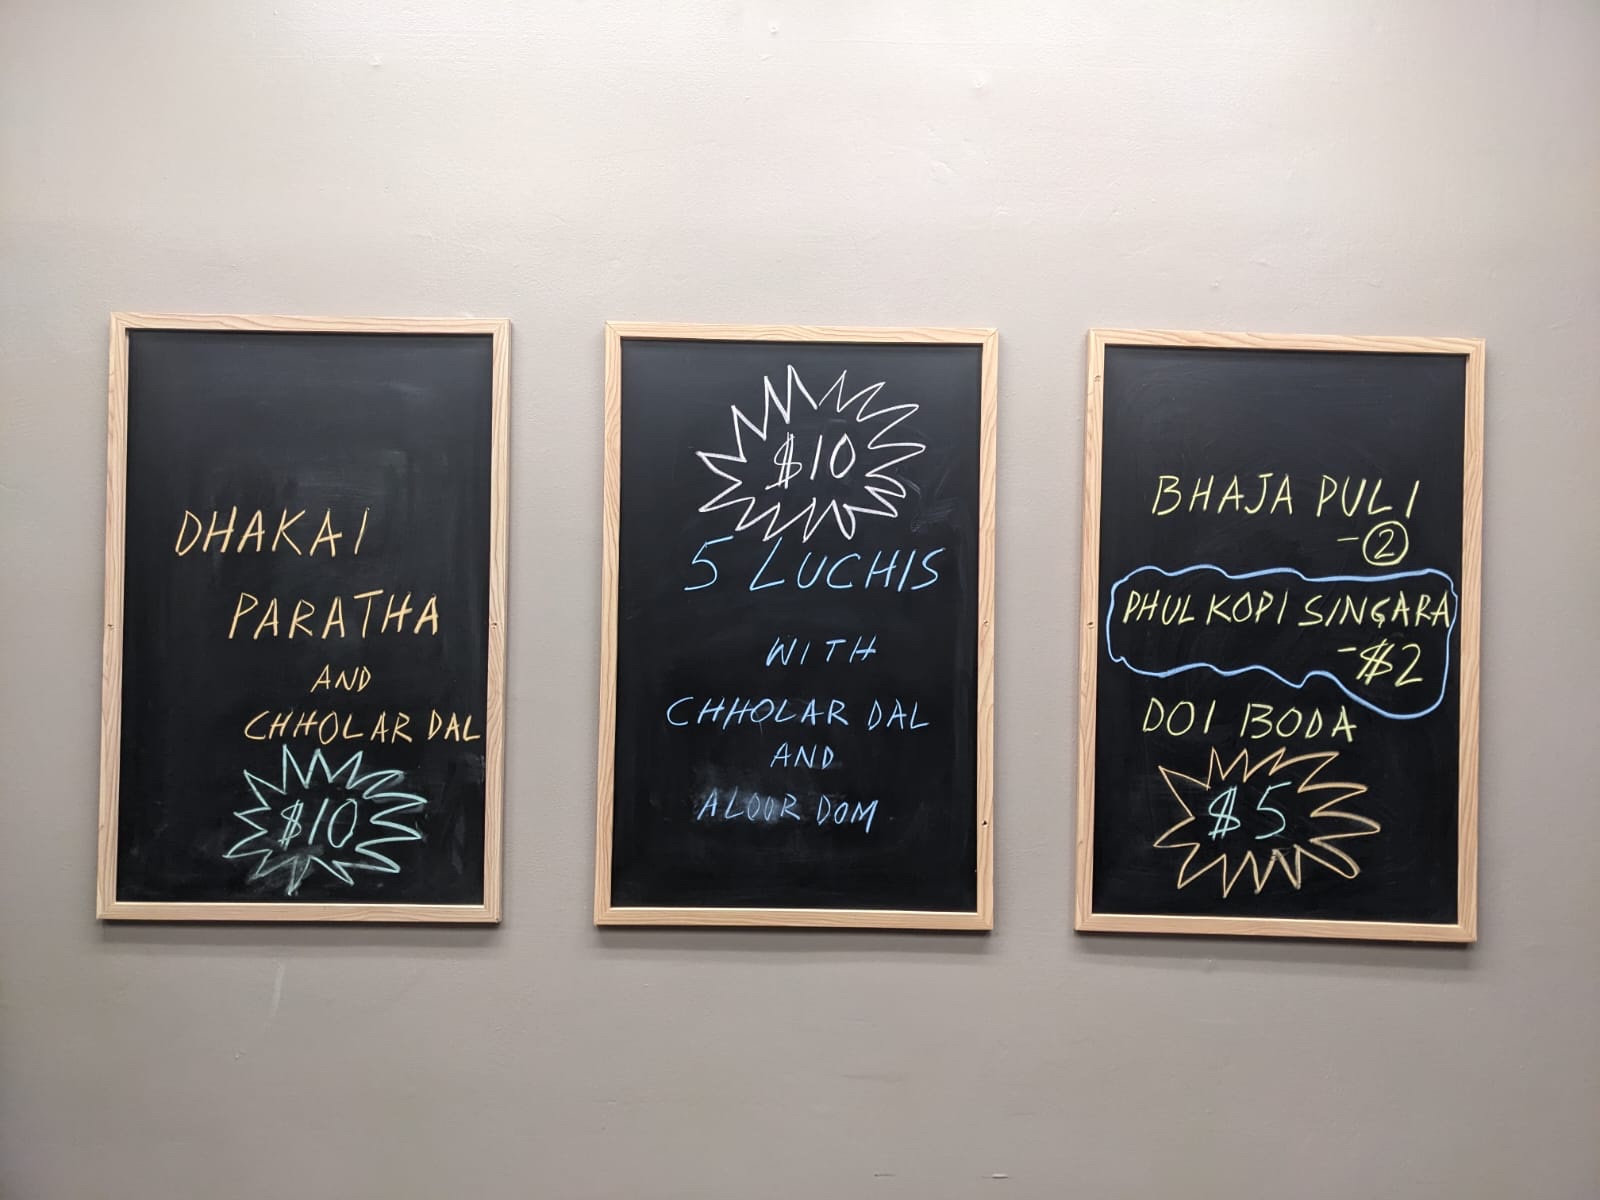 DHAKAI
PARATHA
AND
CHHOLAR DAL
$10
$10
5 LUCHIS
WITH
CHHOLAR DAL
AND
ALOOR DOM
BHAJA PULI
-2
PHULKOPI SINGARA
-$2
DOI BODA
$5